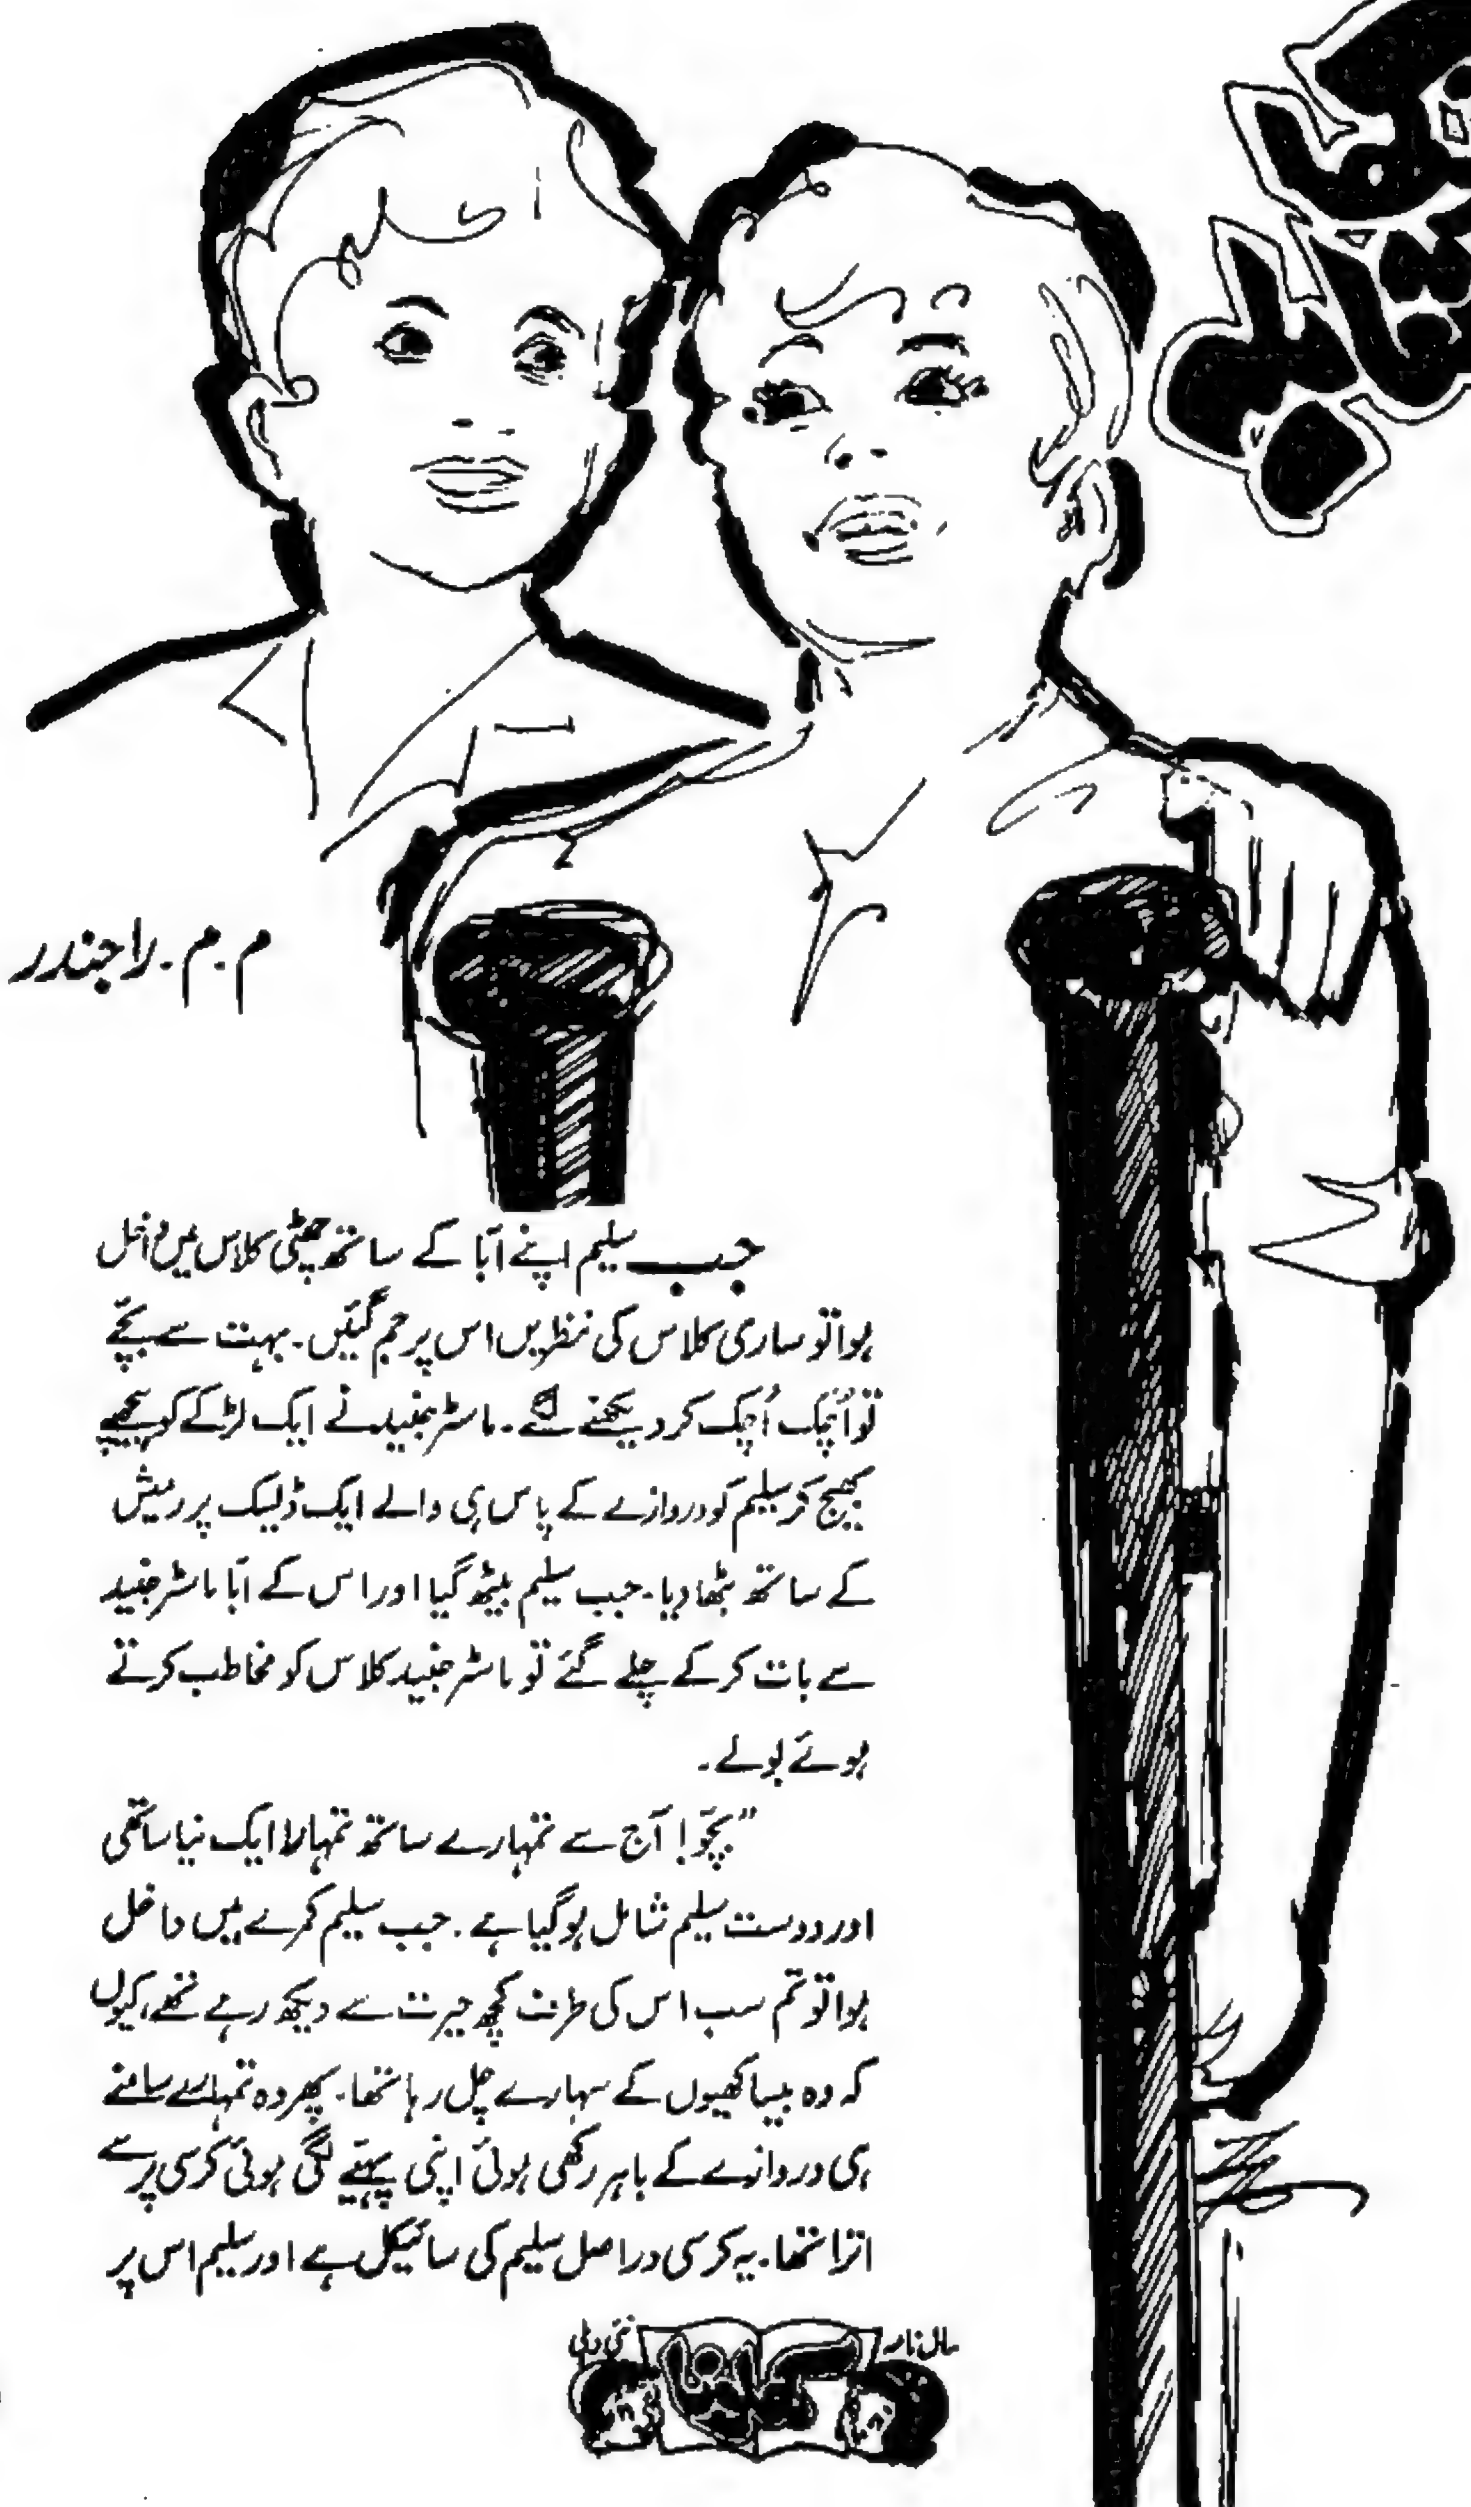 م۔م۔راجندر
جب سلیم اپنے ابّا کے ساتھ چھٹی کلاس میں داخل
ہوا تو ساری کلاس کی نظریں اس پر جم گئیں۔ بہت سے بچّے
تو اُچک اُچک کر دیکھنے لگے۔ ماسٹر جنید نے ایک لڑکے کو پیچھے
بھیج کر سلیم کو دروازے کے پاس ہی والے ایک ڈیسک پر رمیش
کے ساتھ بٹھا دیا۔ جب سلیم بیٹھ گیا اور اس کے ابّا ماسٹر جنید
سے بات کر کے چلے گئے تو ماسٹر جنید کلاس کو مخاطب کرتے
ہوئے بولے۔
”بچّو! آج سے تمہارے ساتھ تمہارا ایک نیا ساتھی
اور دوست سلیم شامل ہو گیا ہے۔ جب سلیم کمرے میں داخل
ہوا تو تم سب اس کی طرف کچھ حیرت سے دیکھ رہے تھے، کیوں
کہ وہ بیساکھیوں کے سہارے چل رہا تھا۔ پھر وہ تمہارے سامنے
ہی دروازے کے باہر رکھی ہوئی اپنی پہیّے لگی ہوئی کرسی پر سے
اترا تھا۔ یہ کرسی دراصل سلیم کی سائیکل ہے اور سلیم اس پر
سال نامہ نئی دہلی